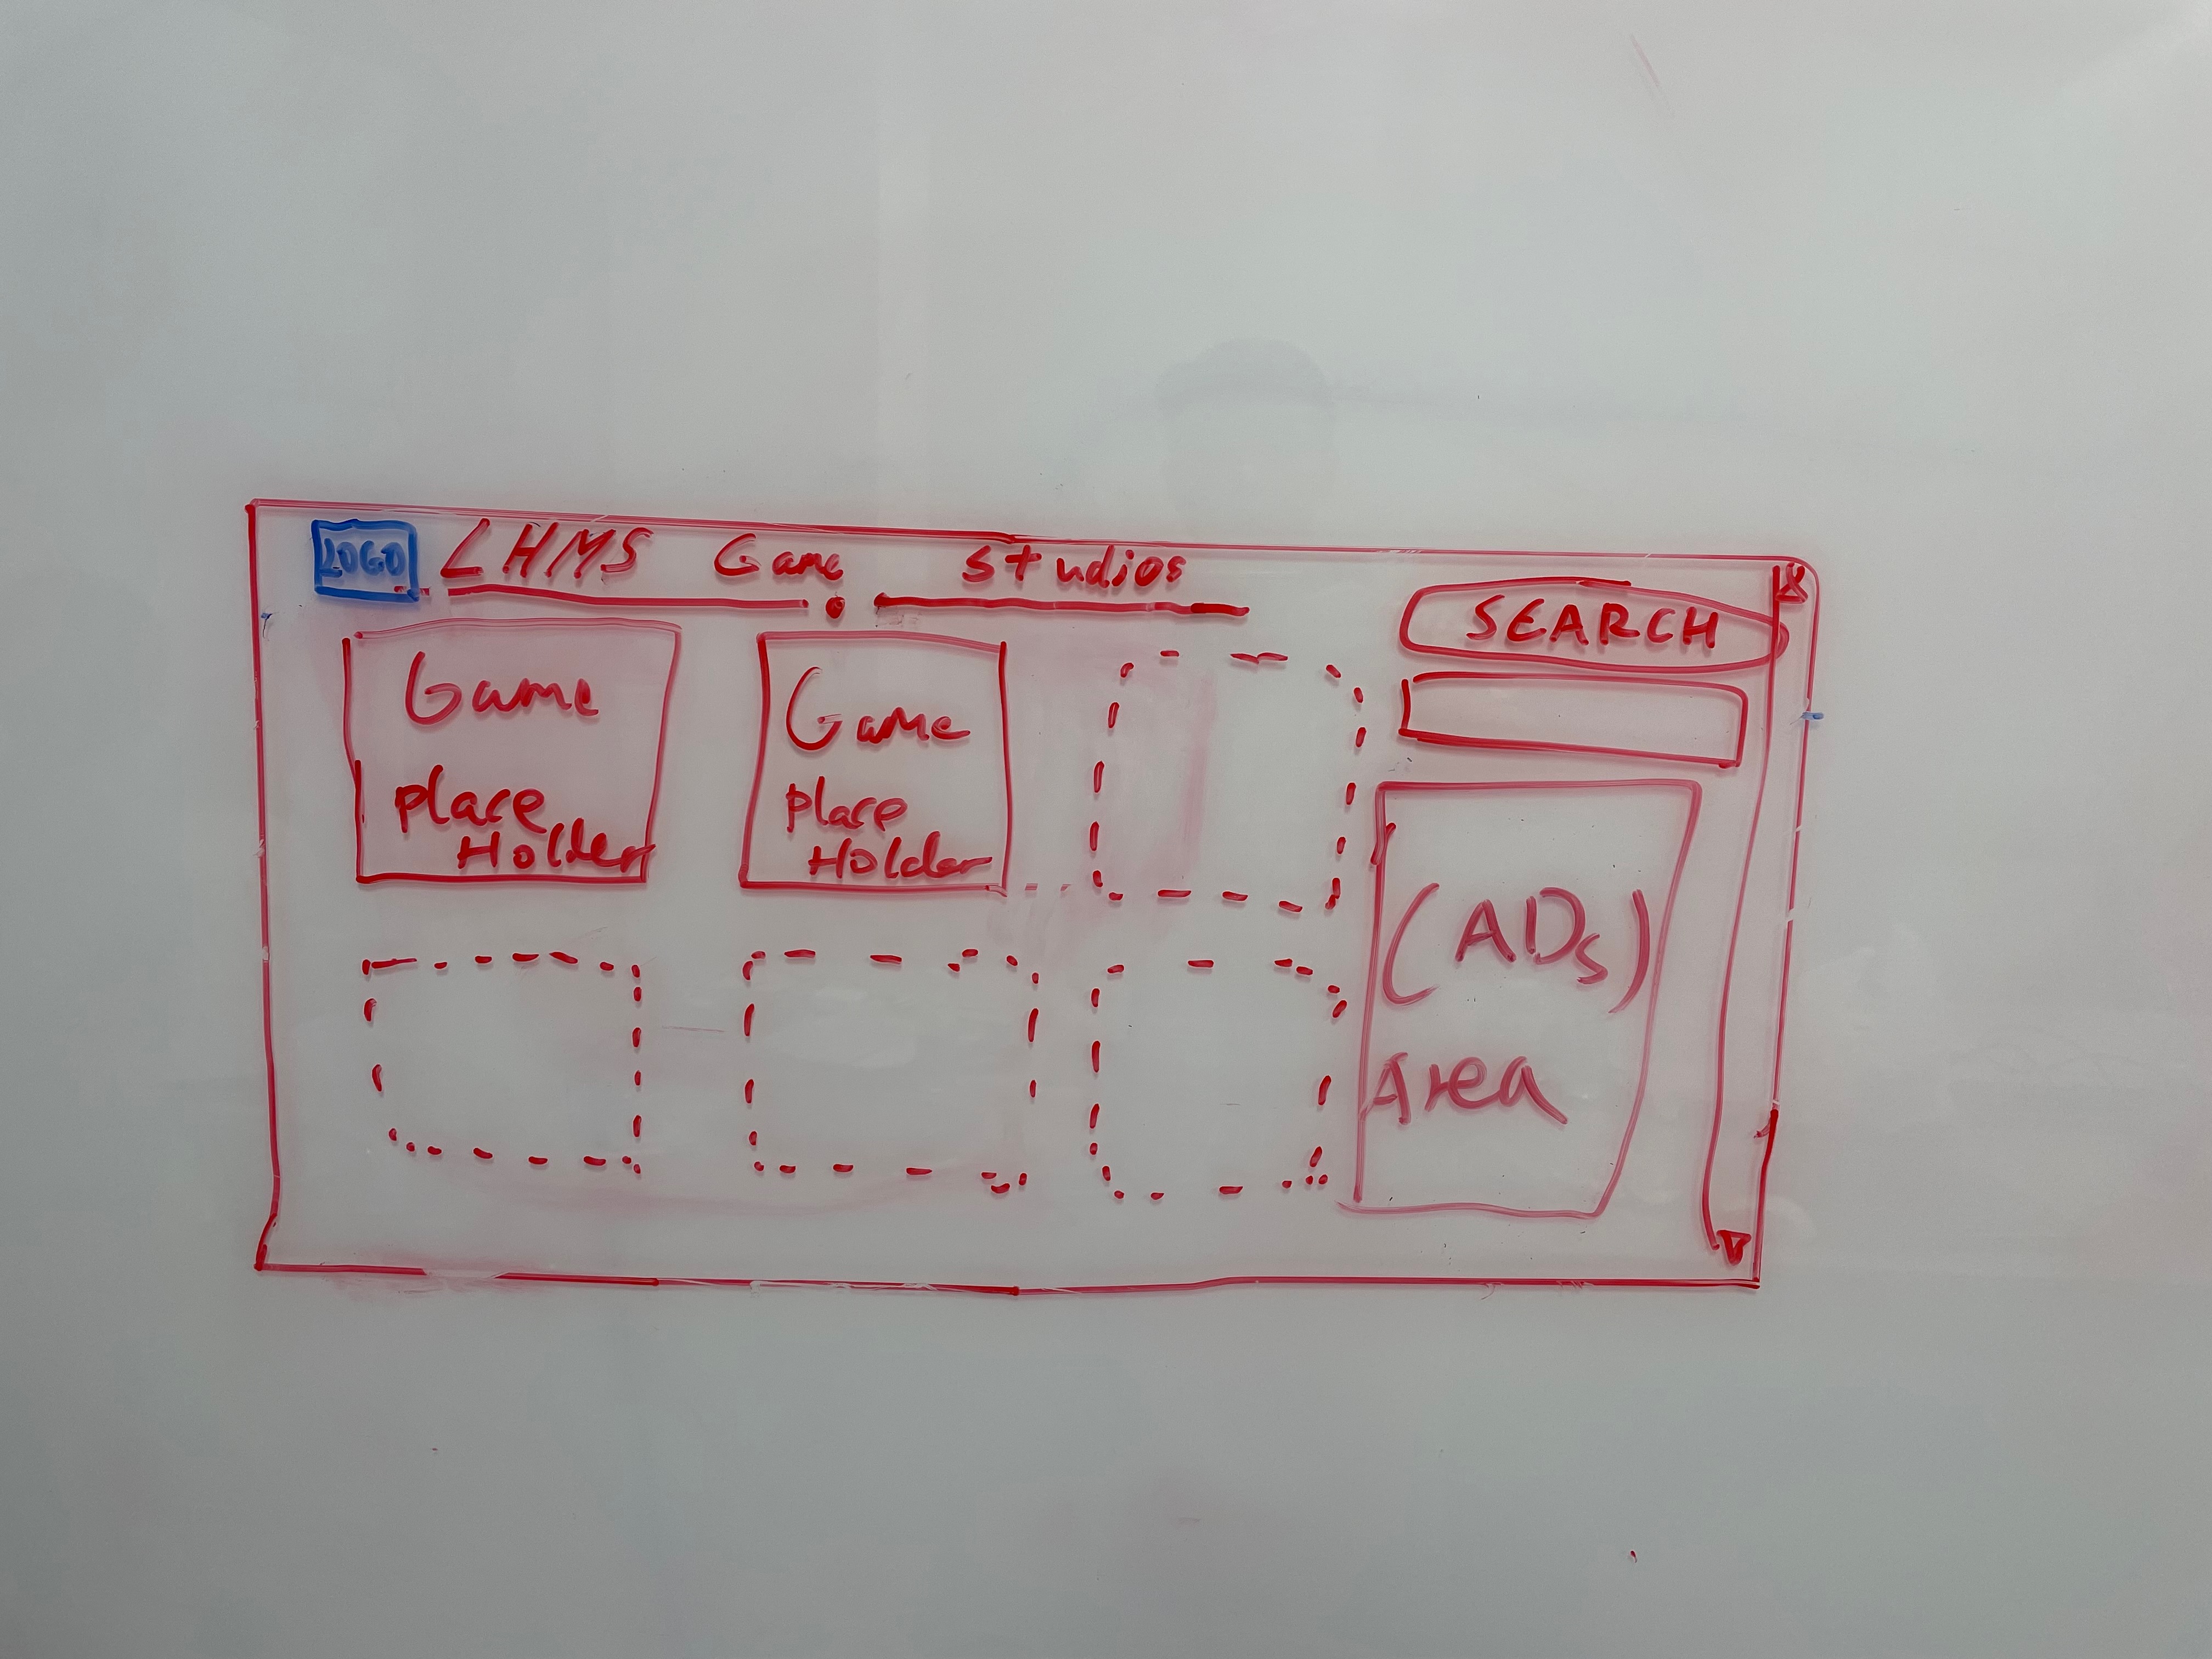 LOGO LHMS Game Studios
SEARCH
Game
Place
Holder
Game
Place
Holder
(ADs)
Area